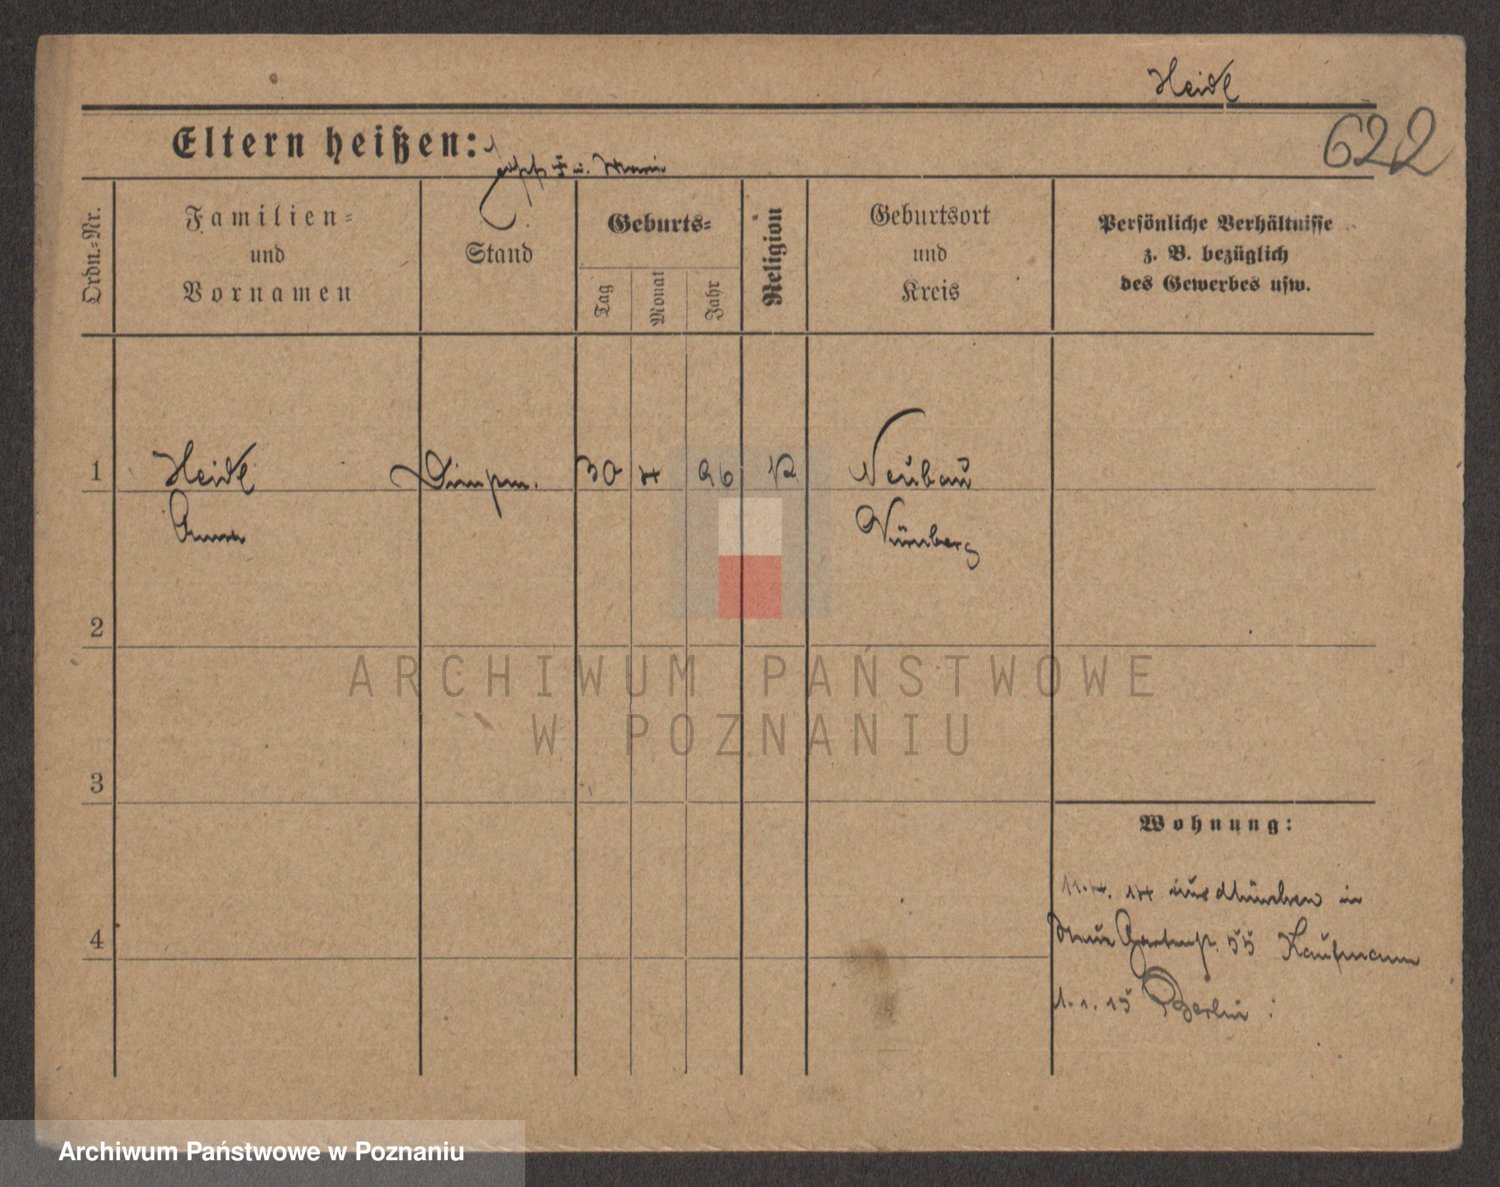 Heidl
622
Eltern heißen: Joseph † u. Marie
Ordn.=Nr.
Familien=
und
Vornamen
Stand
Geburts=
Tag
Monat
Jahr
Religion
Geburtsort
und
Kreis
Persönliche Verhältnisse
z. B. bezüglich
des Gewerbes usw.
1
Heidl
Anna
30
4
96
Neubau
Nürnberg
2
3
4
ARCHIWUM PAŃSTWOWE
W POZNANIU
Wohnung:
11.4.14 aus München in
Neue Gartenstr. 55 Kaufmann
1.1.15 Berlin
Archiwum Państwowe w Poznaniu